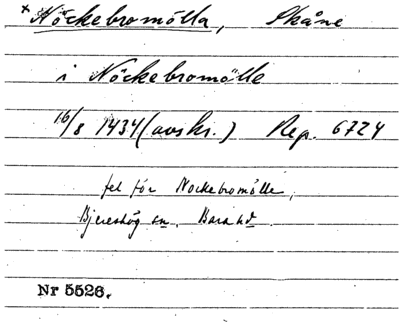 × Nöckebromölla, Skåne
i Nöckebromölle
16/8 1434 (avskr.) Rep. 6724
fel för Nockebromölle,
Bjereshög sn, Bara hd
Nr 5526.